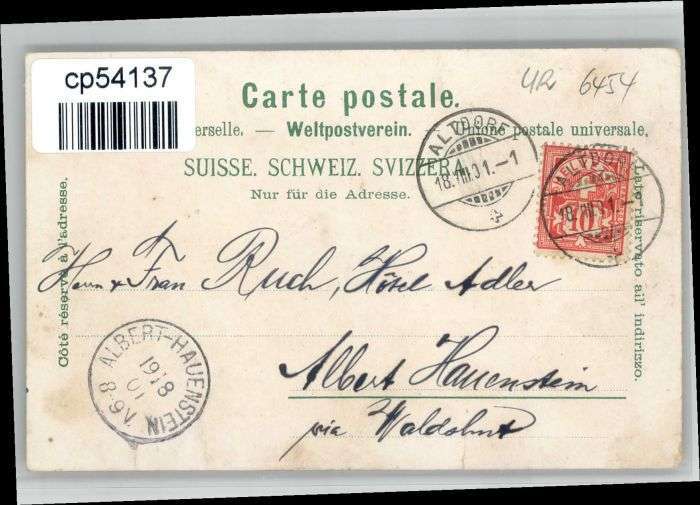 cp54137
Uri 6454
Carte postale.
erselle. — Weltpostverein. Unione postale universale,
SUISSE. SCHWEIZ. SVIZZERA.
Nur für die Adresse.
Côté réservé à l'adresse.
Lato riservato all' indirizzo.
ALTDORF
18.VIII.01.-1
ALTDORF
18.VIII.01.-1
10
Herrn & Frau Ruch, Hôtel Adler
Albert Hauenstein
via Waldshut
ALBERT-HAUENSTEIN
19 8
01
6-8 V.